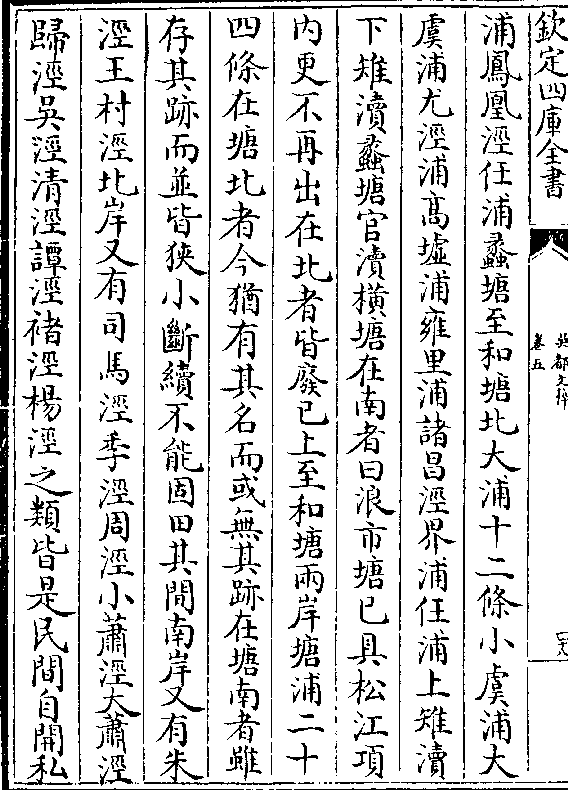 欽定四庫全書
吳都文粹
卷五
浦鳳凰涇任浦蠡塘至和塘北大浦十二條小虞浦大
虞浦尤涇浦高墟浦雍里浦諸昌涇界浦任浦上雉瀆
下雉瀆蠡塘官瀆橫塘在南者曰浪市塘已具松江項
内更不再出在北者皆廢已上至和塘兩岸塘浦二十
四條在塘北者今猶有其名而或無其跡在塘南者雖
存其跡而並皆狹小斷續不能固田其間南岸又有朱
涇王村涇北岸又有司馬涇季涇周涇小蕭涇大蕭涇
歸涇吳涇清涇譚涇褚涇楊涇之類皆是民間自開私